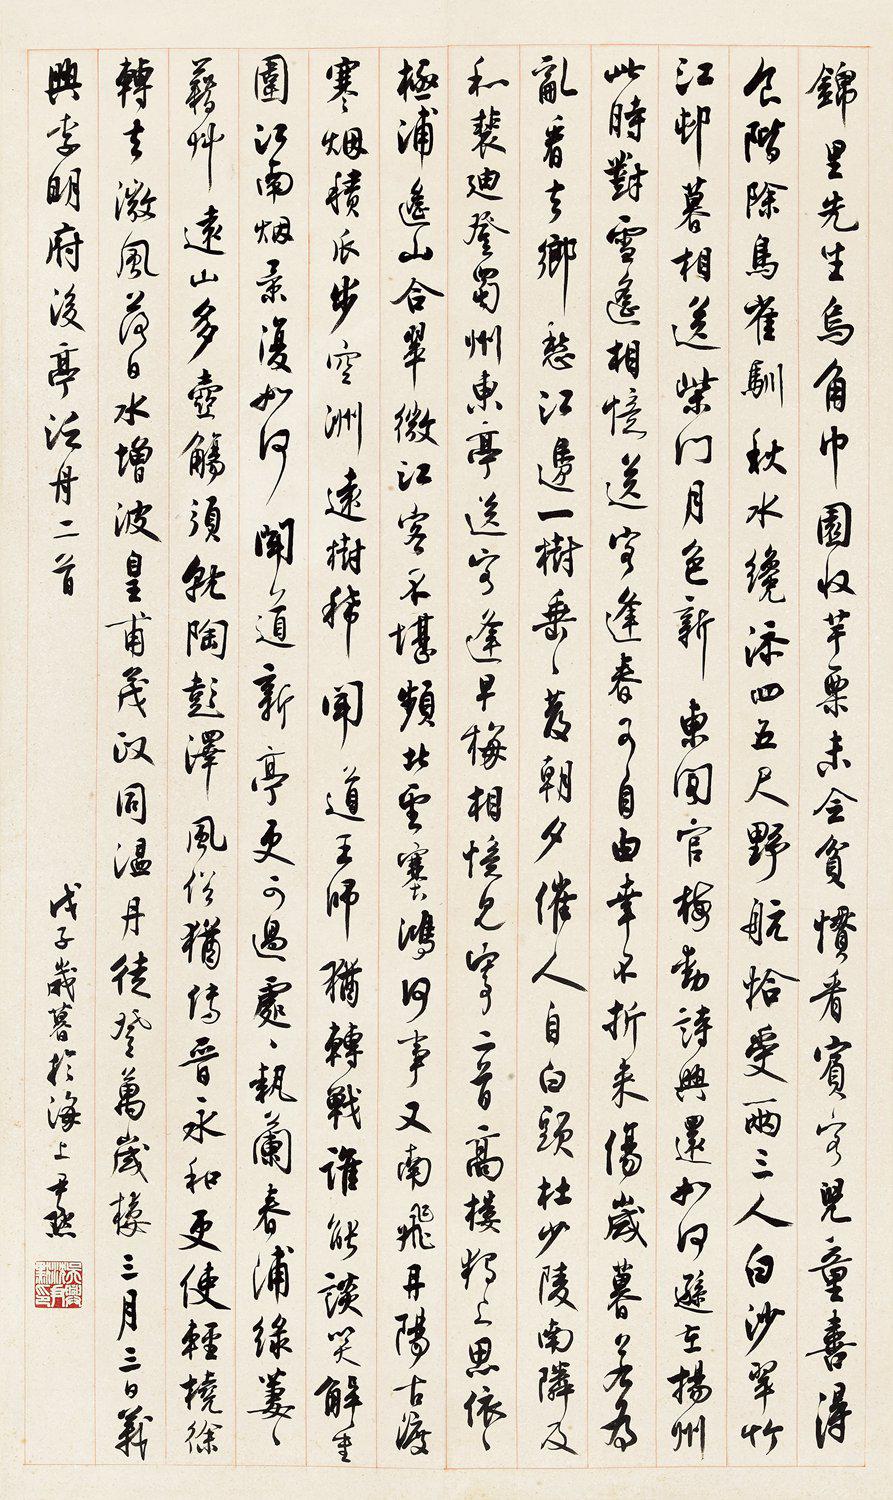 錦里先生烏角巾園收芋栗未全貧慣看賓客兒童喜得
食階除鳥雀馴秋水纔添四五尺野航恰受兩三人白沙翠竹
江邨暮相送柴門月色新東閣官梅動詩興還如何遜在揚州
此時對雪遙相憶送客逢春可自由幸不折來傷歲暮若為
亂看去鄉愁江邊一樹垂垂發朝夕催人自白頭杜少陵南隣及
和裴迪登蜀州東亭送客逢早梅相憶見寄二首高樓獨上思依依
極浦遙山合翠微江客不堪頻北望塞鴻何事又南飛丹陽古渡
寒烟積瓜步空洲遠樹稀聞道王師猶轉戰誰能談笑解重
圍江南烟景復如何聞道新亭更可過處處執蘭春浦綠萋萋
藉艸遠山多壺觴須就陶彭澤風俗猶傳晉永和更使輕橈徐
轉去微風落日水增波皇甫茂政同溫丹徒登萬歲樓三月三日義
興李明府後亭泛舟二首
戊子歲暮於海上尹默